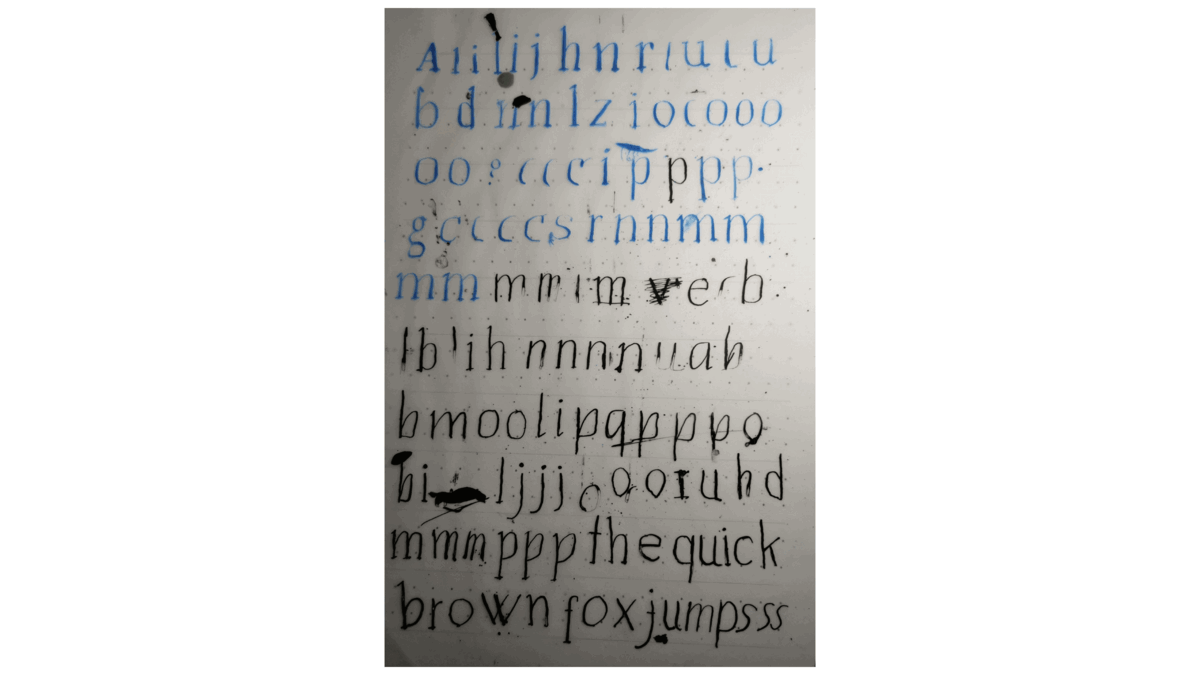 Alilijhnrıuıu
bdımlziocooo
oo ccccippppp
gcccccsrnnmm
mmmmım erb
lblihnnnnuah
bmoolipqppppo
bi ljjjcaoruhd
mmmpppthequick
brownfoxjumpsss